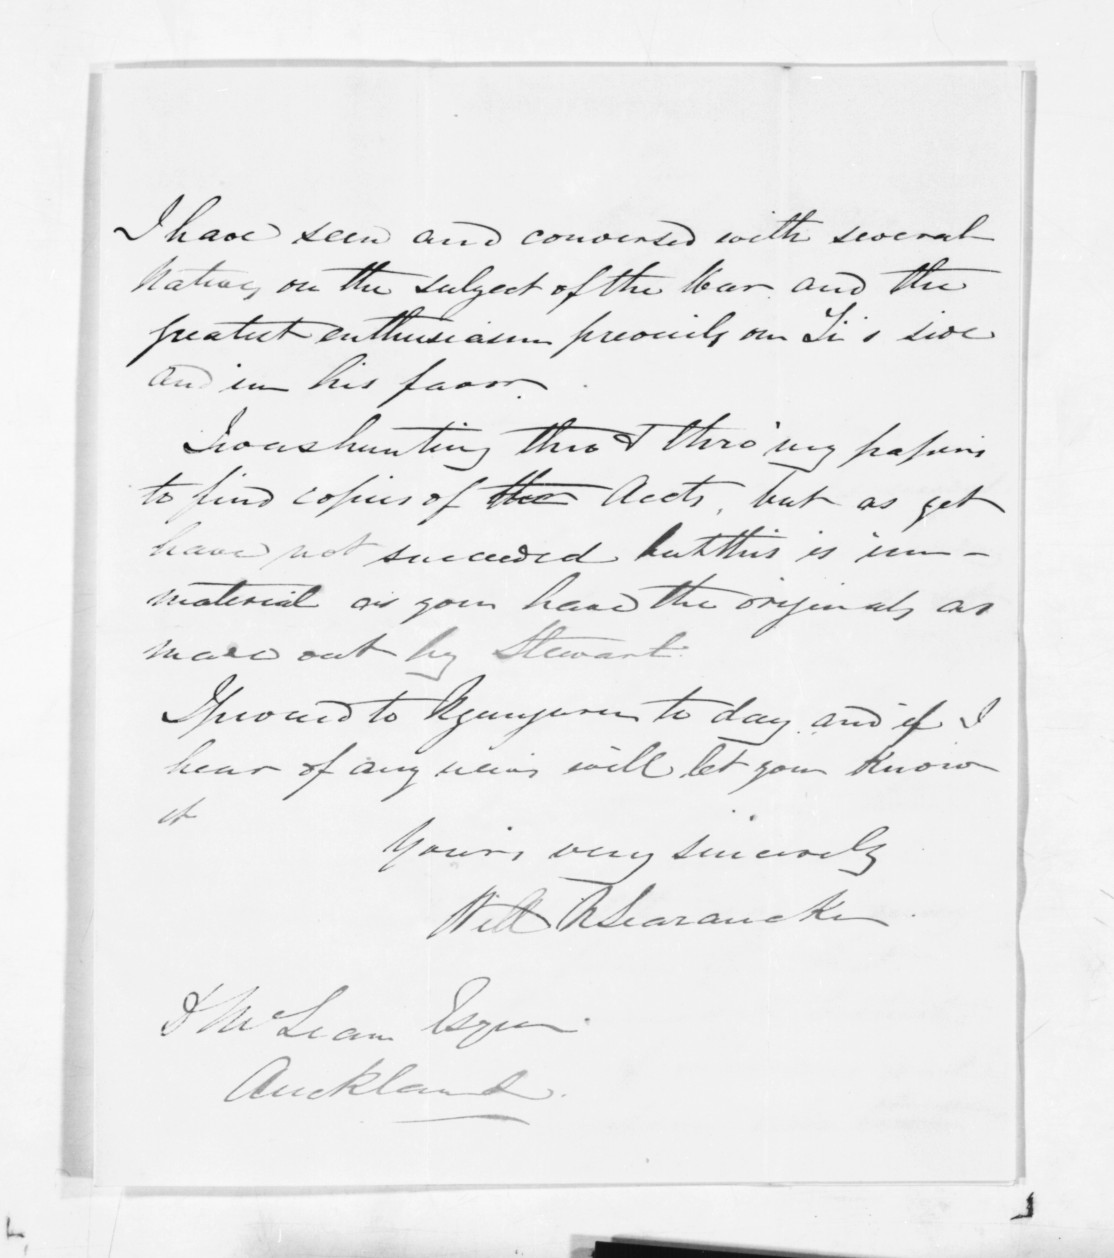 I have seen and conversed with several
Natives on the subject of the War and the
greatest enthusiasm prevails on Ti's side
and in his favor.
I was hunting thro & thro' my papers
to find copies of the Accts, but as yet
have not succeeded but this is im-
material as you have the originals as
made out by Stewart.
I proceed to to day and if I
hear of any news will let you know
it
Yours very sincerely
Will N Searancke
D McLean Esqre
Auckland.